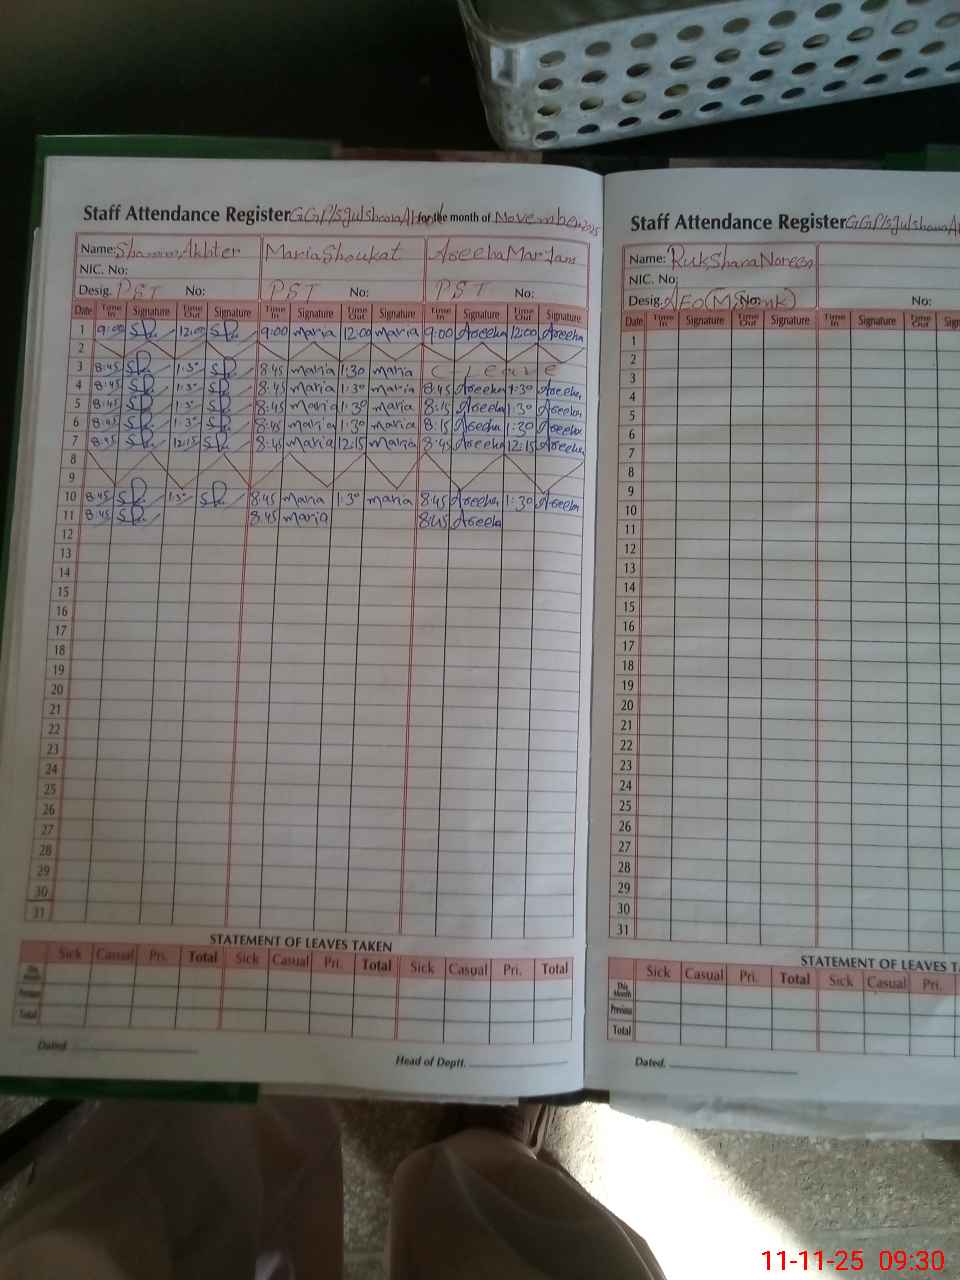 Staff Attendance Register GGP/s Gulshana A for the month of November 2025
Name: Shamim Akhter Maria Shoukat Aseeha Mariam
NIC. No:
Desig. PST No: PST No: PST No:
Date Time In Signature Time Out Signature Time In Signature Time Out Signature Time In Signature Time Out Signature
1 9:00 12:00 9:00 maria 12:00 maria 9:00 Aseeha 12:00 Aseeha
2
3 8:45 1:30 8:45 maria 1:30 maria C-leave
4 8:45 1:30 8:45 maria 1:30 maria 8:45 Aseeha 1:30 Aseeha
5 8:45 1:30 8:45 maria 1:30 maria 8:15 Aseeha 1:30 Aseeha
6 8:45 1:30 8:45 maria 1:30 maria 8:15 Aseeha 1:30 Aseeha
7 8:45 12:15 8:45 maria 12:15 maria 8:45 Aseeha 12:15 Aseeha
8
9
10 8:45 1:30 8:45 maria 1:30 maria 8:45 Aseeha 1:30 Aseeha
11 8:45 8:45 maria 8:45 Aseeha
12
13
14
15
16
17
18
19
20
21
22
23
24
25
26
27
28
29
30
31
STATEMENT OF LEAVES TAKEN
Sick Casual Pri. Total Sick Casual Pri. Total Sick Casual Pri. Total
This Month
Previous
Total
Dated.
Head of Deptt.
Staff Attendance Register GGP/s Gulshana
Name: RukShana Noreen
NIC. No:
Desig. AEO (M) No: No:
Date Time In Signature Time Out Signature Time In Signature Time Out
1
2
3
4
5
6
7
8
9
10
11
12
13
14
15
16
17
18
19
20
21
22
23
24
25
26
27
28
29
30
31
STATEMENT OF LEAVES
Sick Casual Pri. Total Sick Casual Pri.
This Month
Previous
Total
Dated.
11-11-25 09:30